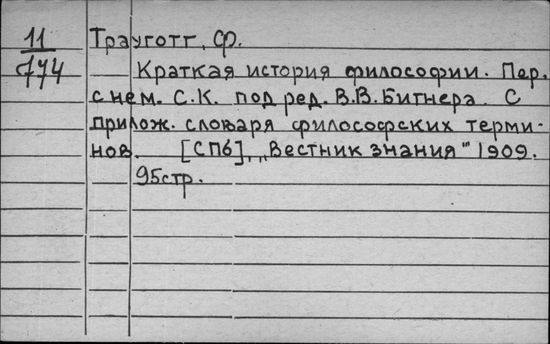 11 Трауготт, Ф.
774 Краткая история философии. Пер.
с нем. С.К. под ред. В.В. Битнера. С
прилож. словаря философских терми-
нов. [СПб], „Вестник знания" 1909.
95стр.